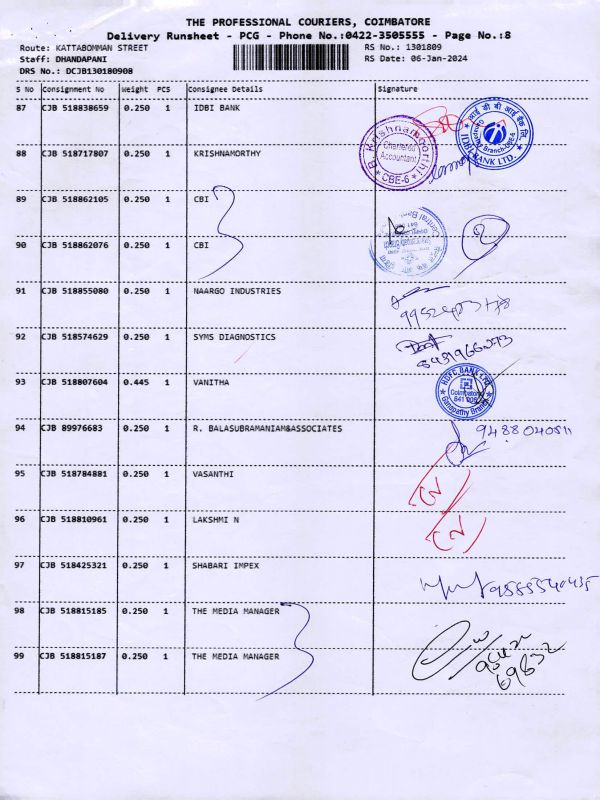 THE PROFESSIONAL COURIERS, COIMBATORE
Delivery Runsheet - PCG - Phone No.:0422-3505555 - Page No.:8
Route: KATTABOMMAN STREET RS No.: 1301809
Staff: DHANDAPANI RS Date: 06-Jan-2024
DRS No.: DCJB130180908
S No Consignment No Weight PCS Consignee Details Signature
87 CJB 518838659 0.250 1 IDBI BANK
IDBI BANK LTD.
B. Krishnamoorthi
Chartered
Accountant
CBE-6
88 CJB 518717807 0.250 1 KRISHNAMORTHY
89 CJB 518862105 0.250 1 CBI
90 CJB 518862076 0.250 1 CBI
91 CJB 518855080 0.250 1 NAARGO INDUSTRIES
92 CJB 518574629 0.250 1 SYMS DIAGNOSTICS
93 CJB 518807604 0.445 1 VANITHA
HDFC BANK LTD
Coimbatore
641 006
Ganapathy Branch
94 CJB 89976683 0.250 1 R. BALASUBRAMANIAM&ASSOCIATES
95 CJB 518784881 0.250 1 VASANTHI
96 CJB 518810961 0.250 1 LAKSHMI N
97 CJB 518425321 0.250 1 SHABARI IMPEX
98 CJB 518815185 0.250 1 THE MEDIA MANAGER
99 CJB 518815187 0.250 1 THE MEDIA MANAGER